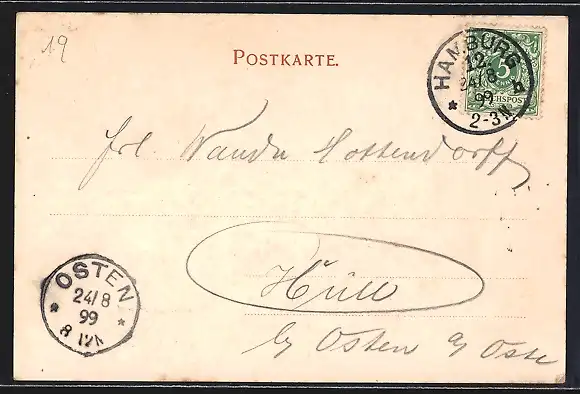 19
POSTKARTE.
HAMBURG
12
24/8
99
2-3N
5
REICHSPOST
Frl. Wanda Hottendorff
Hüll
b/ Osten a/ Oste
OSTEN
24/8
99
8-12N